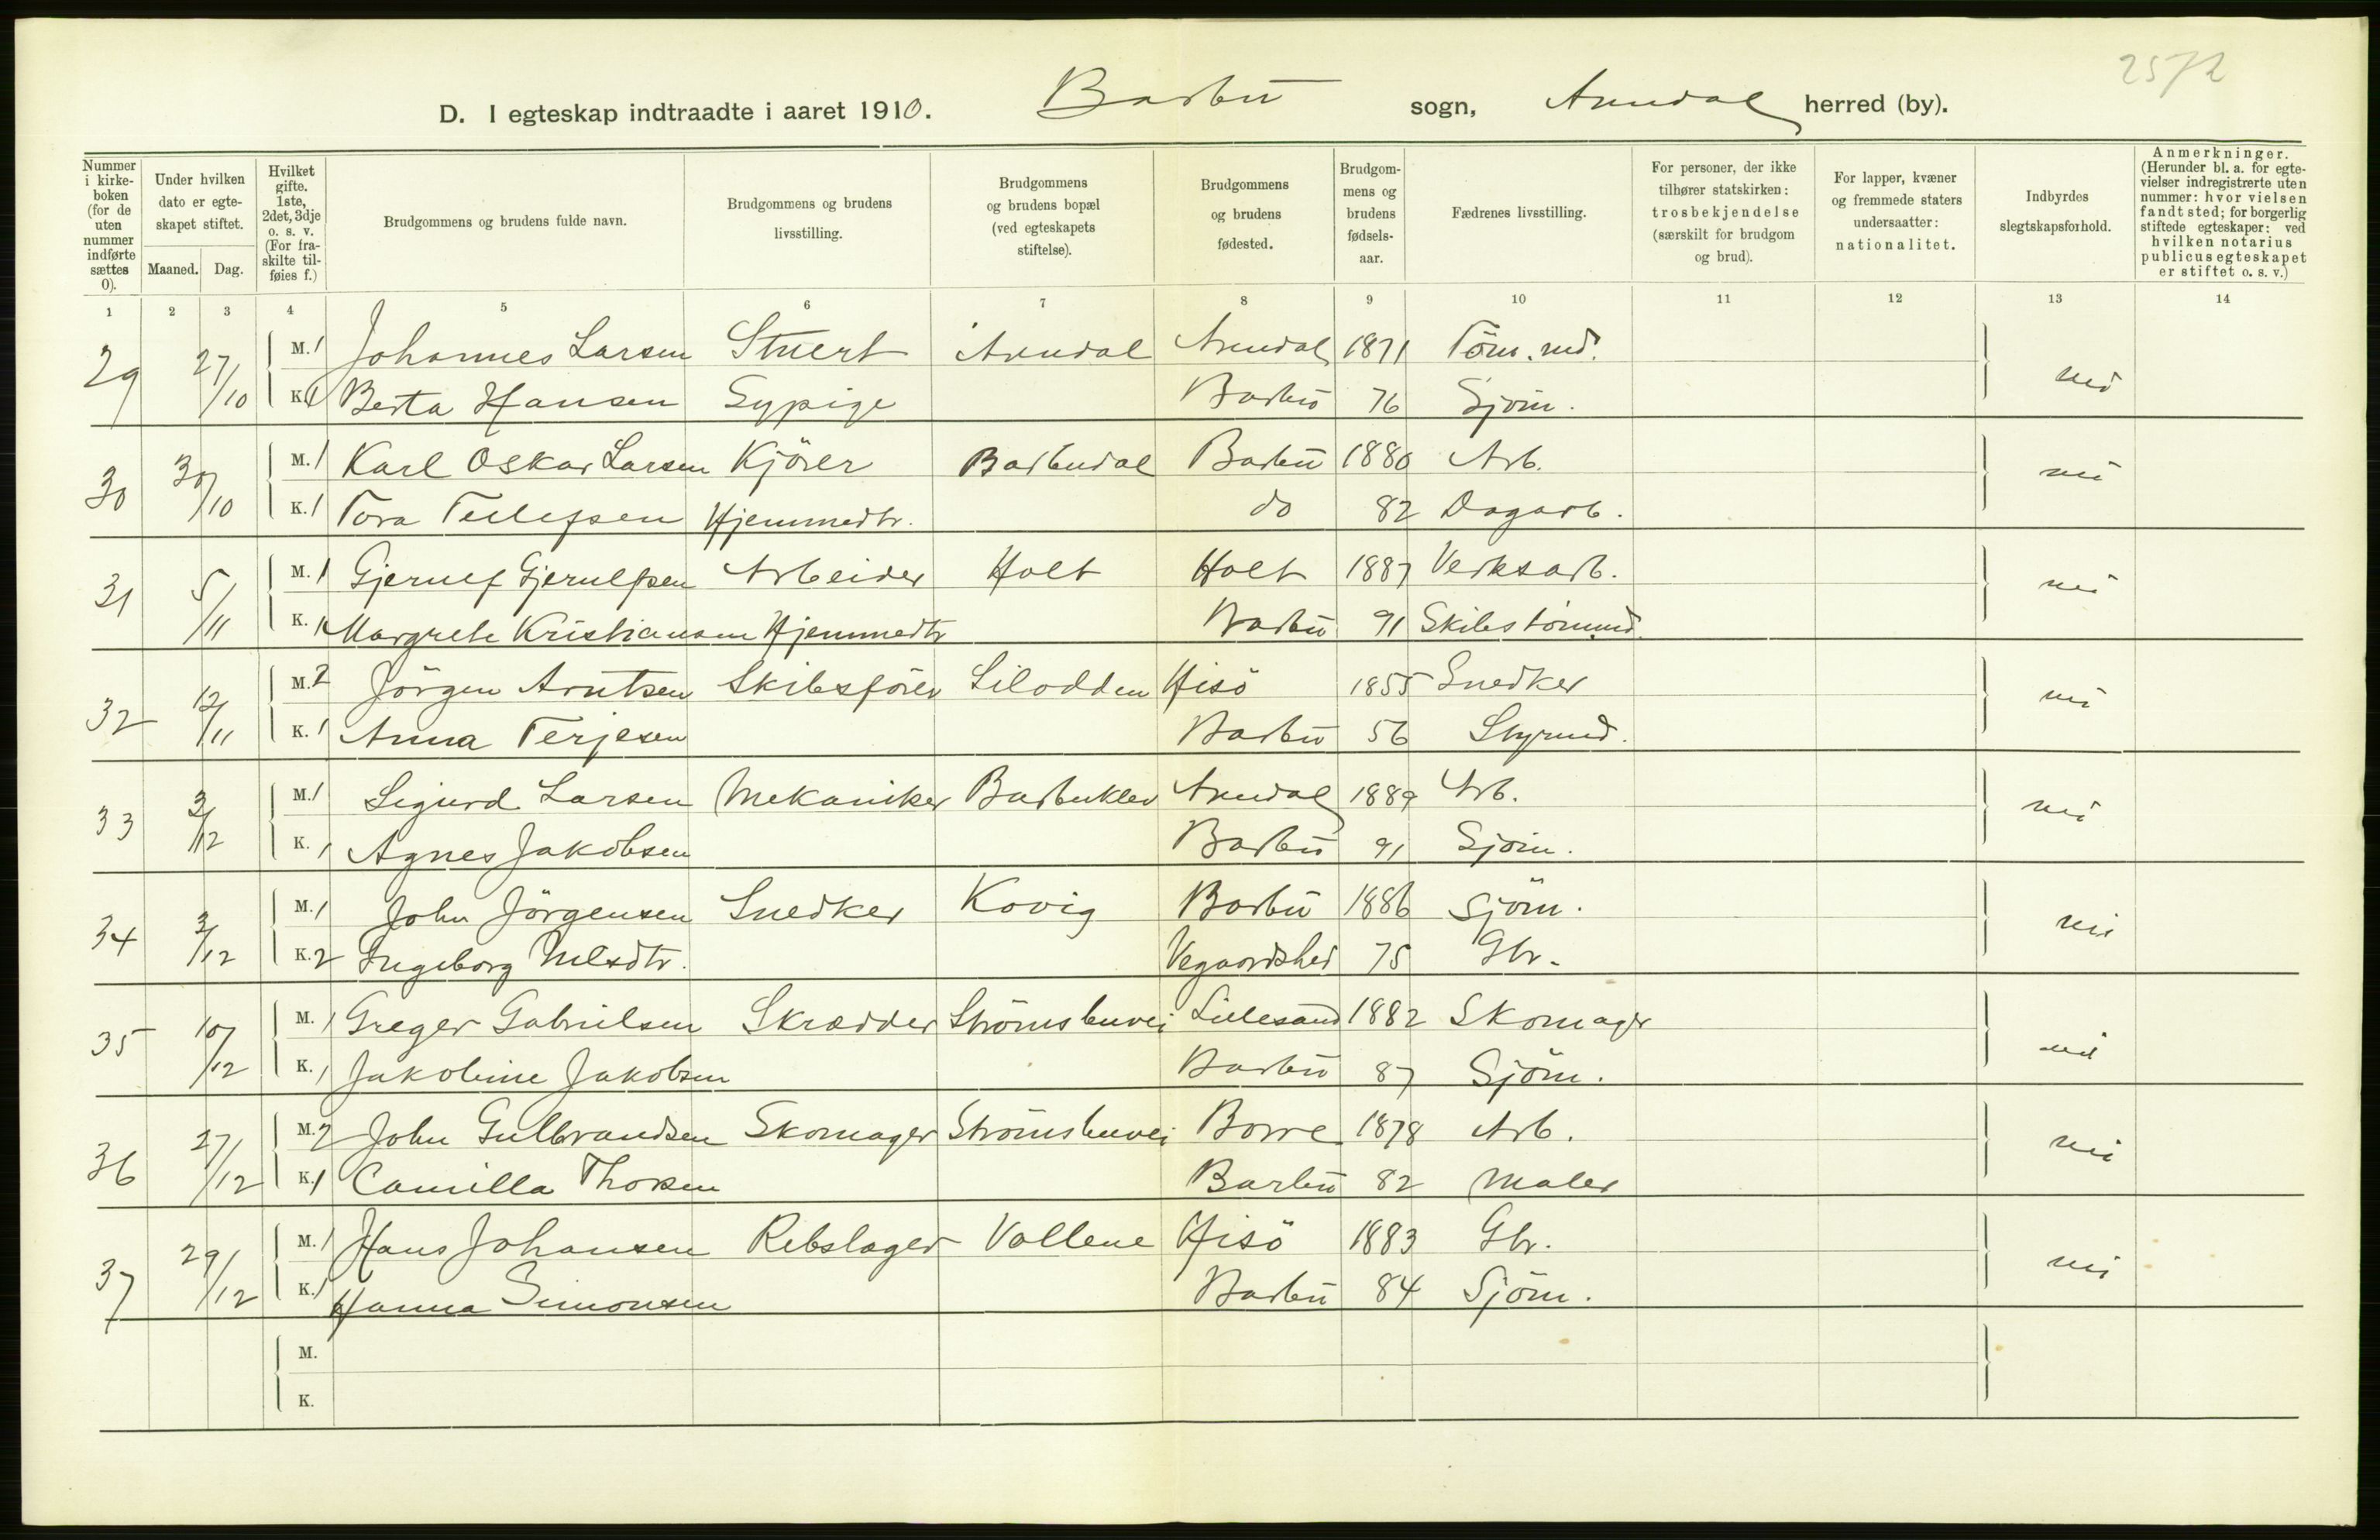 2572
D. I egteskap indtraadte i aaret 1910. Barbu sogn, Arendal herred (by).
Nummer i kirke-boken (for de uten nummer indførte sættes 0).
Under hvilken dato er egte-skapet stiftet.
Maaned. Dag.
Hvilket gifte. 1ste, 2det, 3dje o. s. v. (For fra-skilte til-føies f.)
Brudgommens og brudens fulde navn.
Brudgommens og brudens livsstilling.
Brudgommens og brudens bopæl (ved egteskapets stiftelse).
Brudgommens og brudens fødested.
Brudgom-mens og brudens fødsels-aar.
Fædrenes livsstilling.
For personer, der ikke tilhører statskirken: trosbekjendelse (særskilt for brudgom og brud).
For lapper, kvæner og fremmede staters undersaatter: nationalitet.
Indbyrdes slegtskapsforhold.
Anmerkninger. (Herunder bl. a. for egte-vielser indregistrerte uten nummer: hvor vielsen fandt sted; for borgerlig stiftede egteskaper: ved hvilken notarius publicus egteskapet er stiftet o. s. v.)
1 2 3 4 5 6 7 8 9 10 11 12 13 14
29 27/10 M. 1 Johannes Larsen Stuert Arendal Arendal 1871 Töm.md. nei
K. 1 Berta Hansen Sypige Barbu 76 Sjöm.
30 30/10 M. 1 Karl Oskar Larsen Kjörer Barbudal Barbu 1880 Arb. nei
K. 1 Tora Tellefsen Hjemmedtr. do 82 Dagarb.
31 5/11 M. 1 Gjerulf Gjerulfsen Arbeider Holt Holt 1887 Verksarb. nei
K. 1 Margrete Kristiansen Hjemmedtr Barbu 91 Skibstömmd.
32 12/11 M. 2 Jörgen Arntsen Skibsförer Lilodden Hisö 1855 Snedker nei
K. 1 Anna Terjesen Barbu 56 Styrmd.
33 3/12 M. 1 Sigurd Larsen Mekaniker Barbuklev Arendal 1889 Arb. nei
K. 1 Agnes Jakobsen Barbu 91 Sjöm.
34 3/12 M. 1 John Jörgensen Snedker Kovig Barbu 1886 Sjöm. nei
K. 2 Ingeborg Nilsdtr. Vegaardshei 75 Gbr.
35 10/12 M. 1 Greger Gabrielsen Skrædder Strömsbuvei Lillesand 1882 Skomager nei
K. 1 Jakobine Jakobsen Barbu 87 Sjöm.
36 27/12 M. 2 John Gulbrandsen Skomager Strömsbuvei Borre 1878 Arb. nei
K. 1 Camilla Thorsen Barbu 82 Maler
37 29/12 M. 1 Hans Johansen Rebslager Vollene Hisö 1883 Gbr. nei
K. 1 Hanna Simonsen Barbu 84 Sjöm.
M.
K.